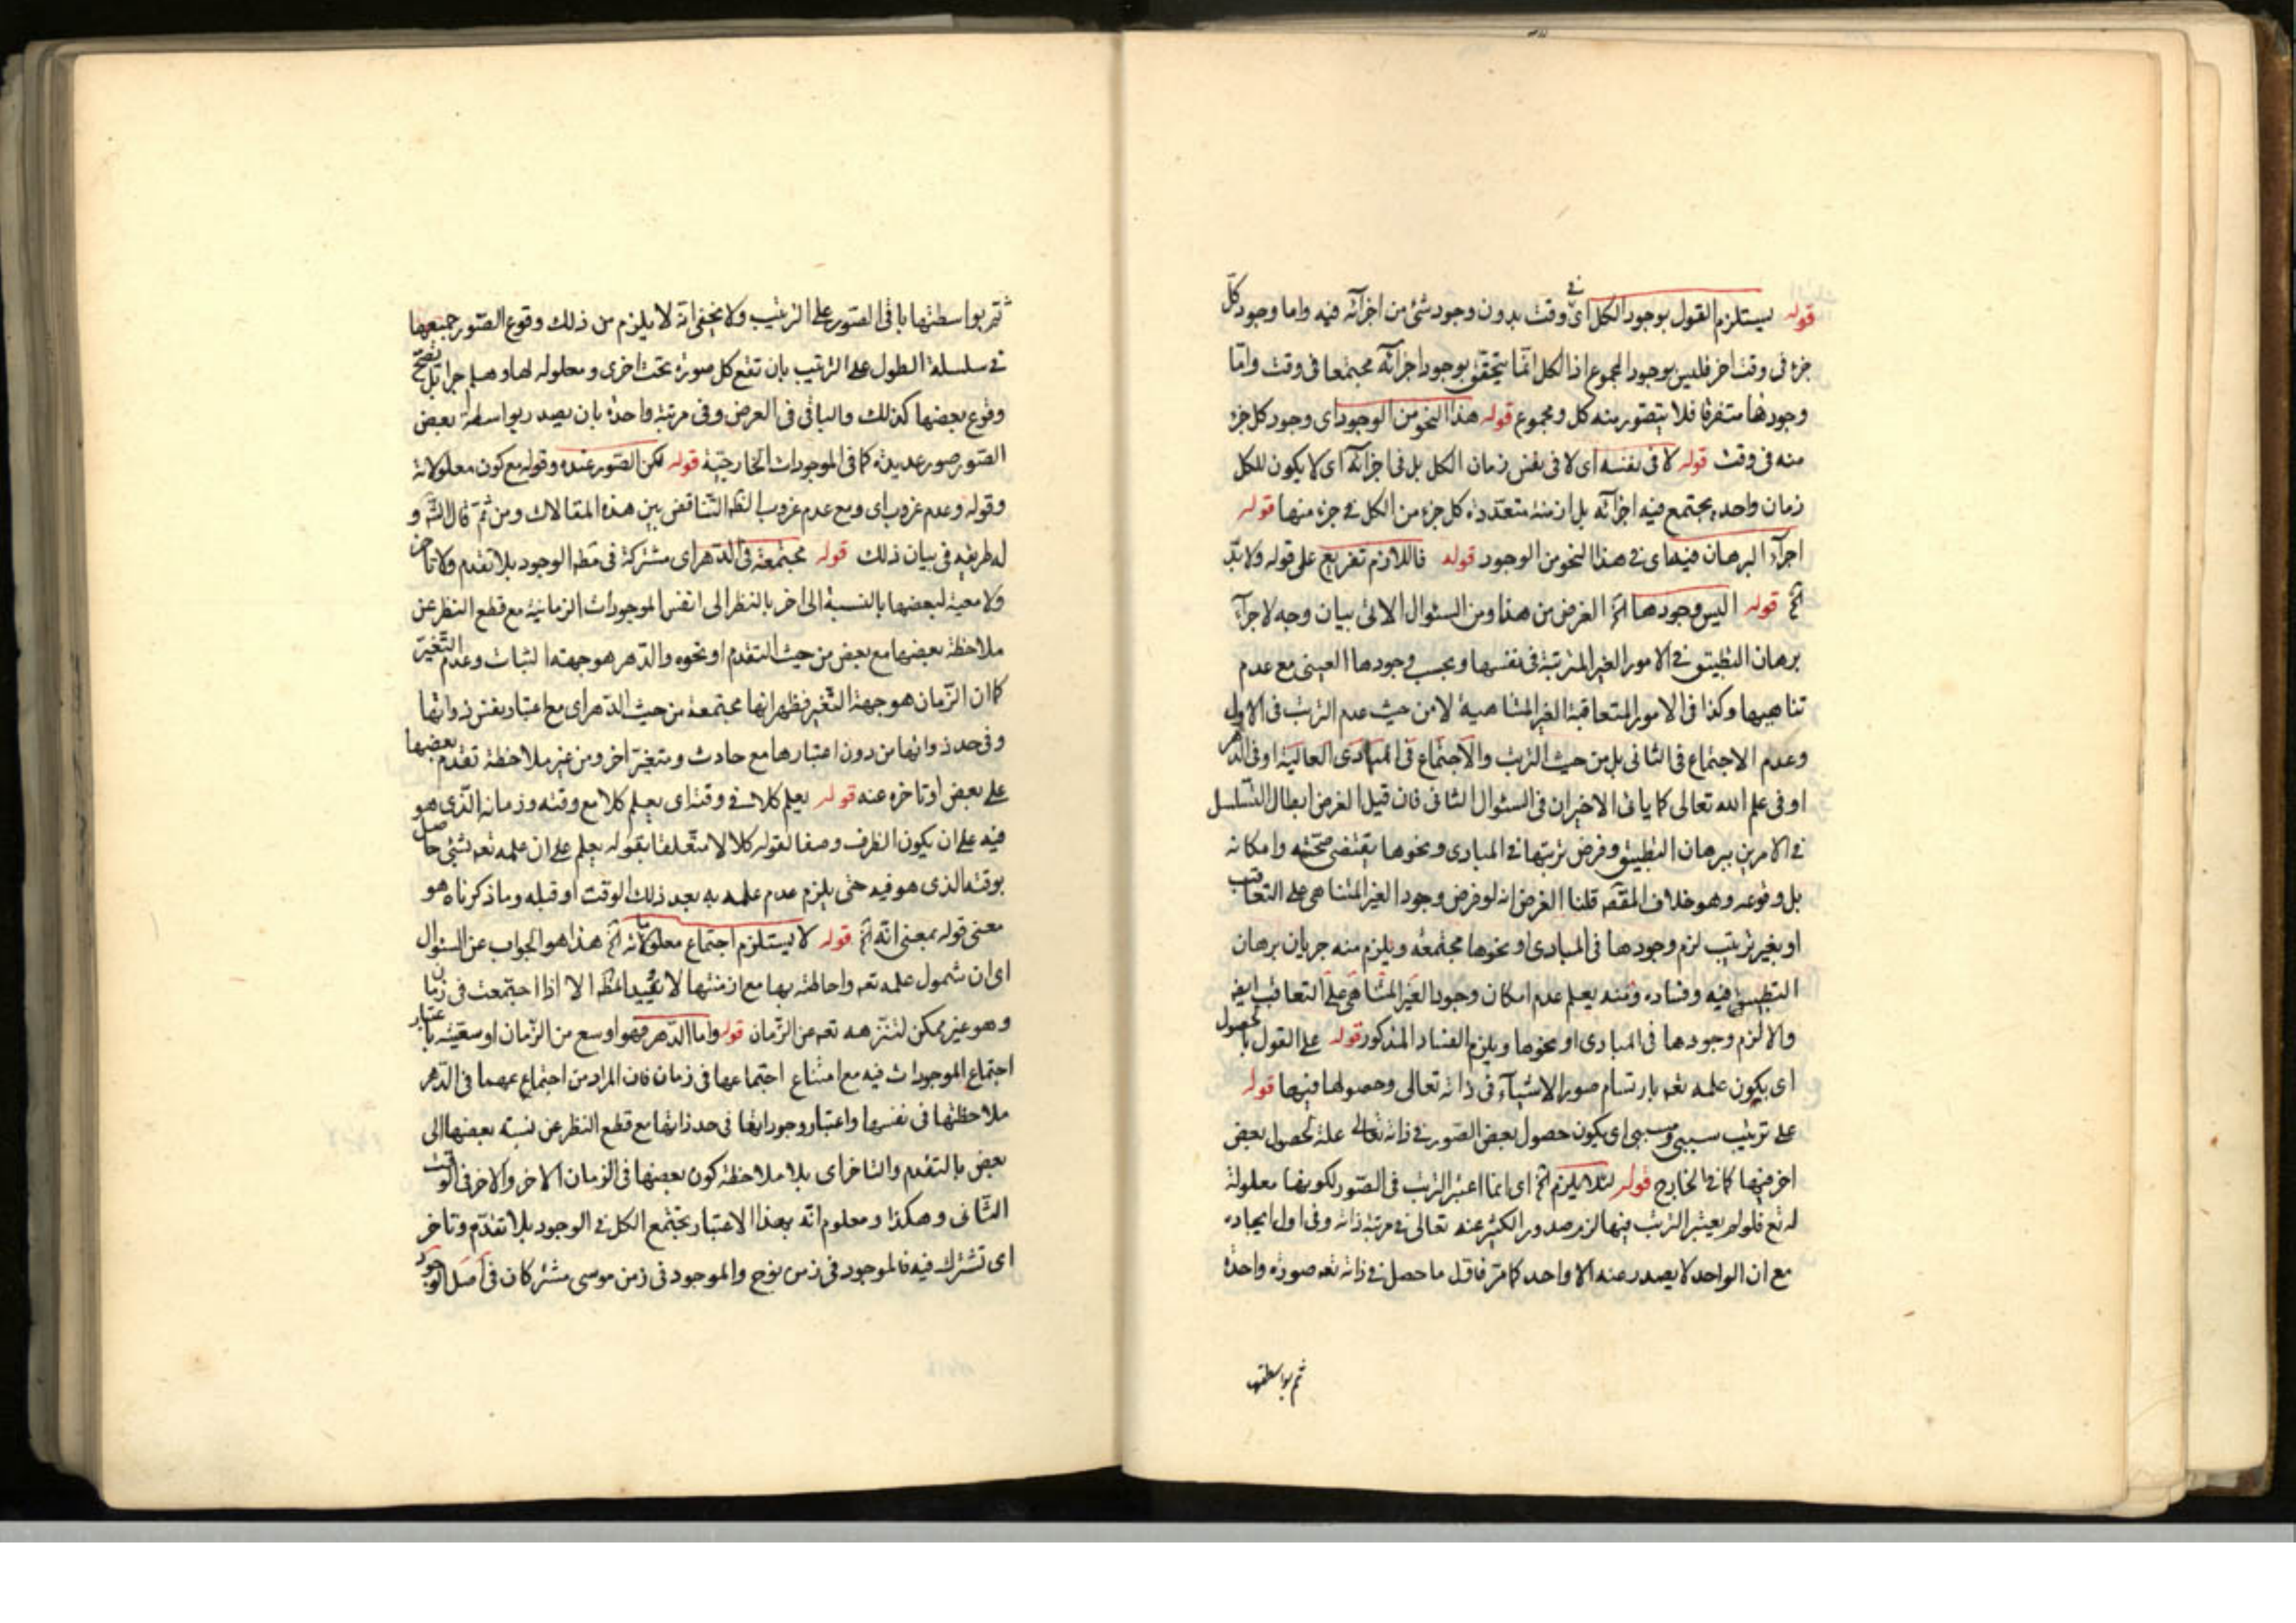 قوله يستلزم القول بوجود الكل اى فى وقت بدون وجود شئ من اجزائه فيه واما وجود كل
جزء فى وقت اخر فليس بوجود المجموع اذ الكل انما يتحقق بوجود اجزائه مجتمعا فى وقت واما
وجودها متفرقا فلا يتصور منه كل ومجموع قوله هذا النحو من الوجود اى وجود كل جزء
منه فى وقت قوله لا فى نفسه اى لا فى نفس زمان الكل بل فى اجزائه اى لا يكون للكل
زمان واحد يجتمع فيه اجزائه بل ازمنة متعددة كل جزء من الكل فى جزء منها قوله
اجراء البرهان فيها اى فى هذا النحو من الوجود قوله فاللازم تفريع على قوله ولا بد
الخ قوله اليس وجودها الخ الغرض من هذا ومن السئوال الاتى بيان وجه لاجراء
برهان التطبيق فى الامور الغير المترتبة فى نفسها وبحسب وجودها العينى مع عدم
تناهيها وكذا فى الامور المتعاقبة الغير المتناهية لا من حيث عدم الترتب فى الاول
وعدم الاجتماع فى الثانى بل من حيث الترتب والاجتماع فى المبادى العالية او فى الدهر
او فى علم الله تعالى كما ياتى الاخيران فى السئوال الثانى فان قيل الغرض ابطال التسلسل
فى الامرين ببرهان التطبيق وفرض ترتبها فى المبادى ونحوها يقتضى صحته وامكانه
بل وقوعه وهو خلاف المقصد قلنا الغرض انه لو فرض وجود الغير المتناهى على التعاقب
او بغير ترتيب لزم وجودها فى المبادى او نحوها مجتمعه ويلزم منه جريان برهان
التطبيق فيه وفساده ومنه يعلم عدم امكان وجود الغير المتناهى على التعاقب ايض
والا لزم وجودها فى المبادى او نحوها ويلزم الفساد المذكور قوله على القول بالحصول
اى يكون علمه تعه بارتسام صور الاشياء فى ذاته تعالى وحصولها فيها قوله
على ترتيب سببى ومسببى اى يكون حصول بعض الصور فى ذاته تعالى علة لحصول بعض
اخر فيها كما فى الخارج قوله لئلا يلزم الخ اى انما اعتبر الترتب فى الصور لكونها معلولة
له تع فلو لم يعتبر الترتب فيها لزم صدور الكثير عنه تعالى فى مرتبة ذاته وفى اول ايجاده
مع ان الواحد لا يصدر عنه الا واحد كما مر فاقل ما حصل فى ذاته تعه صورة واحدة
ثم بواسطتها
ثم بواسطتها باقى الصور على الترتيب ولا يخفى انه لا يلزم من ذلك وقوع الصور جميعها
فى سلسلة الطول على الترتيب بان تقع كل صورة تحت اخرى ومعلوله لها وهلم جرا بل يصح
وقوع بعضها كذلك والباقى فى العرض وفى مرتبة واحدة بان يصدر بواسطة بعض
الصور صور عديدة كما فى الموجودات الخارجية قوله لكن الصور عنده وقوله مع كون معلولاته
وقوله وعدم غروب اى ومع عدم غروب الظه التناقض بين هذه المقالات ومن ثم قال الش و
له طريقه فى بيان ذلك قوله مجتمعة فى الدهر اى مشتركة فى مطه الوجود بلا تقدم ولا تاخر
ولا معية لبعضها بالنسبة الى اخر بالنظر الى انفس الموجودات الزمانية مع قطع النظر عن
ملاحظة بعضها مع بعض من حيث التقدم او نحوه والدهر هو جهته الثبات وعدم التغير
كما ان الزمان هو جهة التغير فظهر انها مجتمعة من حيث الدهر اى مع اعتبار نفس ذواتها
وفى حد ذواتها من دون اعتبارها مع حادث ومتغير اخر ومن غير ملاحظة تقدم بعضها
على بعض او تاخره عنه قوله يعلم كلا فى وقته اى يعلم كلا مع وقته وزمانه الذى هو
فيه على ان يكون الظرف وصفا لقوله كلا لا متعلقا بقوله يعلم على ان علمه تعه بشئ حاصل
بوقته الذى هو فيه حتى يلزم عدم علمه به بعد ذلك الوقت او قبله وما ذكرناه هو
معنى قوله بمعنى انه الخ قوله لا يستلزم اجتماع معلولاته الخ هذا هو الجواب عن السئوال
اى ان شمول علمه تعه واحاطته بها مع ازمنتها لا الا اذا اجتمعت فى زمان
وهو غير ممكن لتنزهه تعه عن الزمان قوله واما الدهر فهو اوسع من الزمان اوسعيته باعتبار
اجتماع الموجودات فيه مع امتناع اجتماعها فى زمان فان المراد من اجتماعهما فى الدهر
ملاحظتها فى نفسها واعتبار وجوداتها فى حد ذاتها مع قطع النظر عن نسبته بعضها الى
بعض بالتقدم والتاخر اى بلا ملاحظة كون بعضها فى الزمان الاخر والاخر فى الوقت
الثانى وهكذا ومعلوم انه بهذا الاعتبار يجتمع الكل فى الوجود بلا تقدم وتاخر
اى تشترك فيه فالموجود فى زمن نوح والموجود فى زمن موسى مشتركان فى اصل الوجود